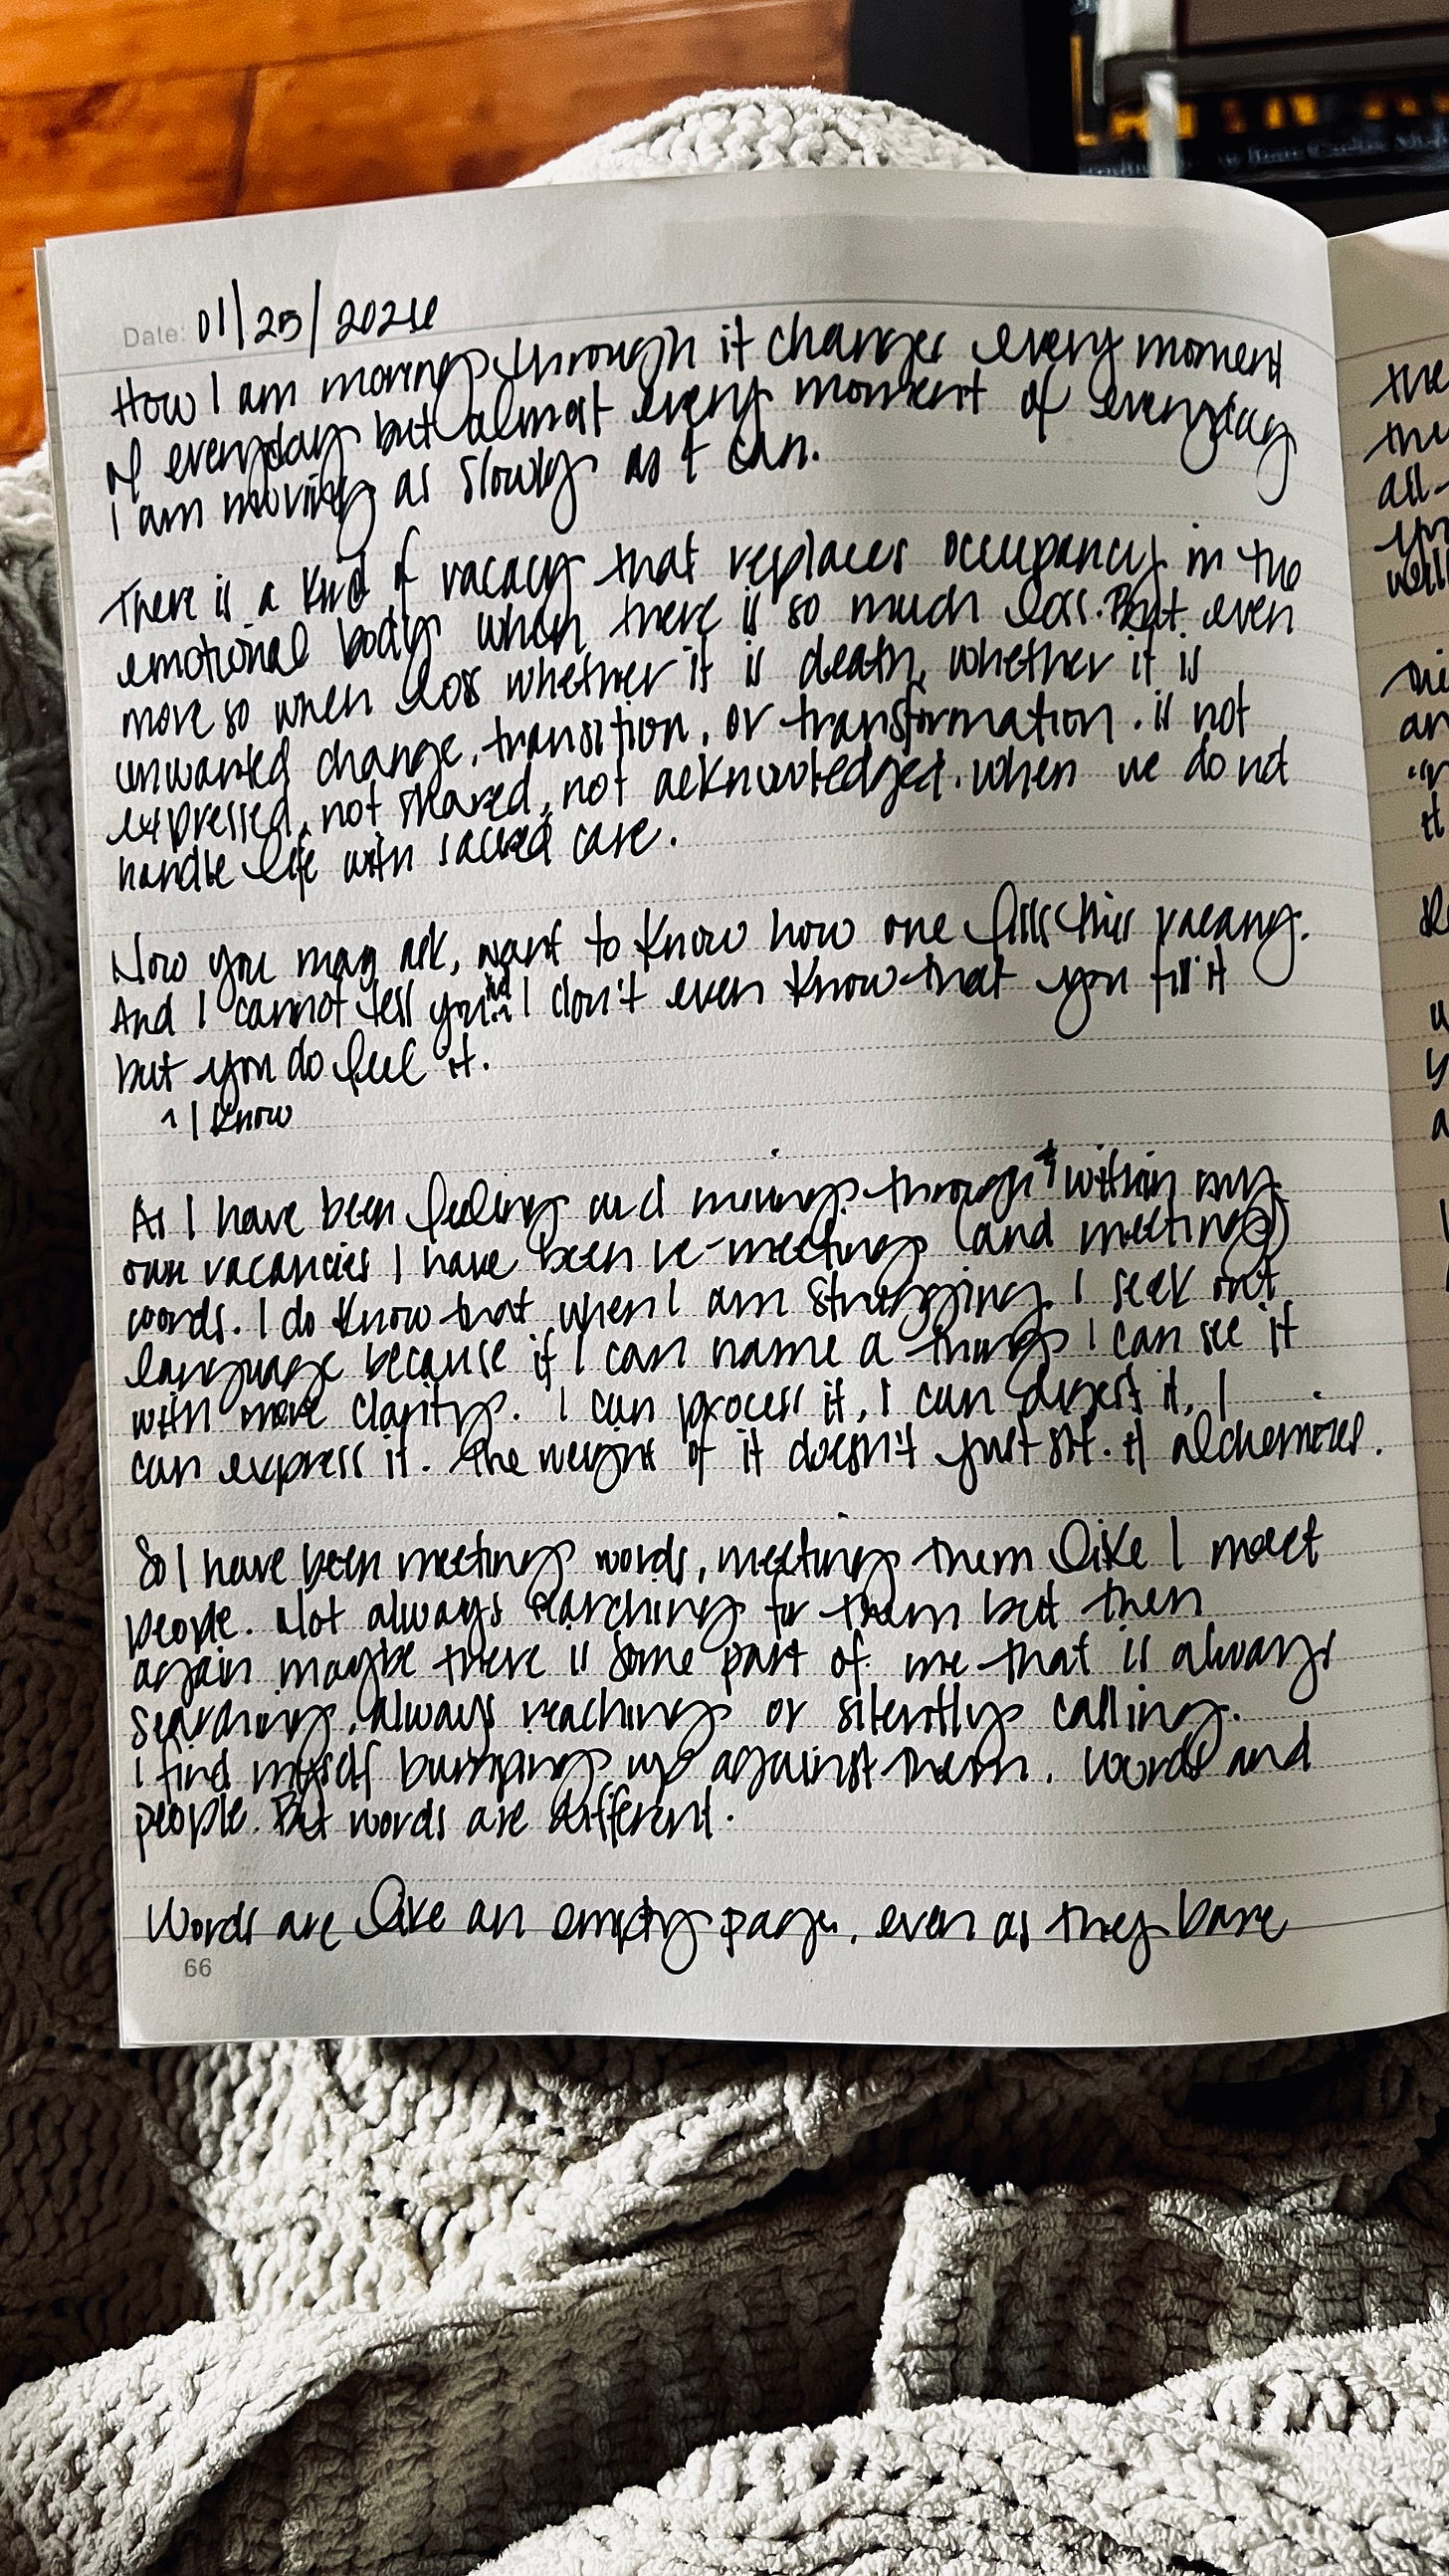 Date: 01/25/2026
How I am moving through it changes every moment
of everyday but almost every moment of everyday
I am moving as slowly as I can.
There is a kind of vacacy that replaces occupancy in the
emotional body when there is so much loss. But even
more so when loss whether it is death, whether it is
unwanted change, transition, or transformation. is not
expressed, not shared, not acknowledged. when we do not
handle life with sacred care.
Now you may ask, want to know how one fills this vacancy.
And I cannot tell you. I don't even know that you fill it
but you do feel it.
^ I know
As I have been feeling and moving through + within my
own vacancies I have been re-meeting (and meeting)
words. I do know that when I am struggling, I seek out
language because if I can name a thing I can see it
with more clarity. I can process it, I can digest it, I
can express it. The weight of it doesn't just sit. it alchemizes.
So I have been meeting words, meeting them like I meet
people. Not always searching for them but then
again maybe there is some part of me that is always
searching, always reaching or silently calling.
I find myself bumping up against them. words and
people. But words are different.
Words are like an empty page, even as they bare
66